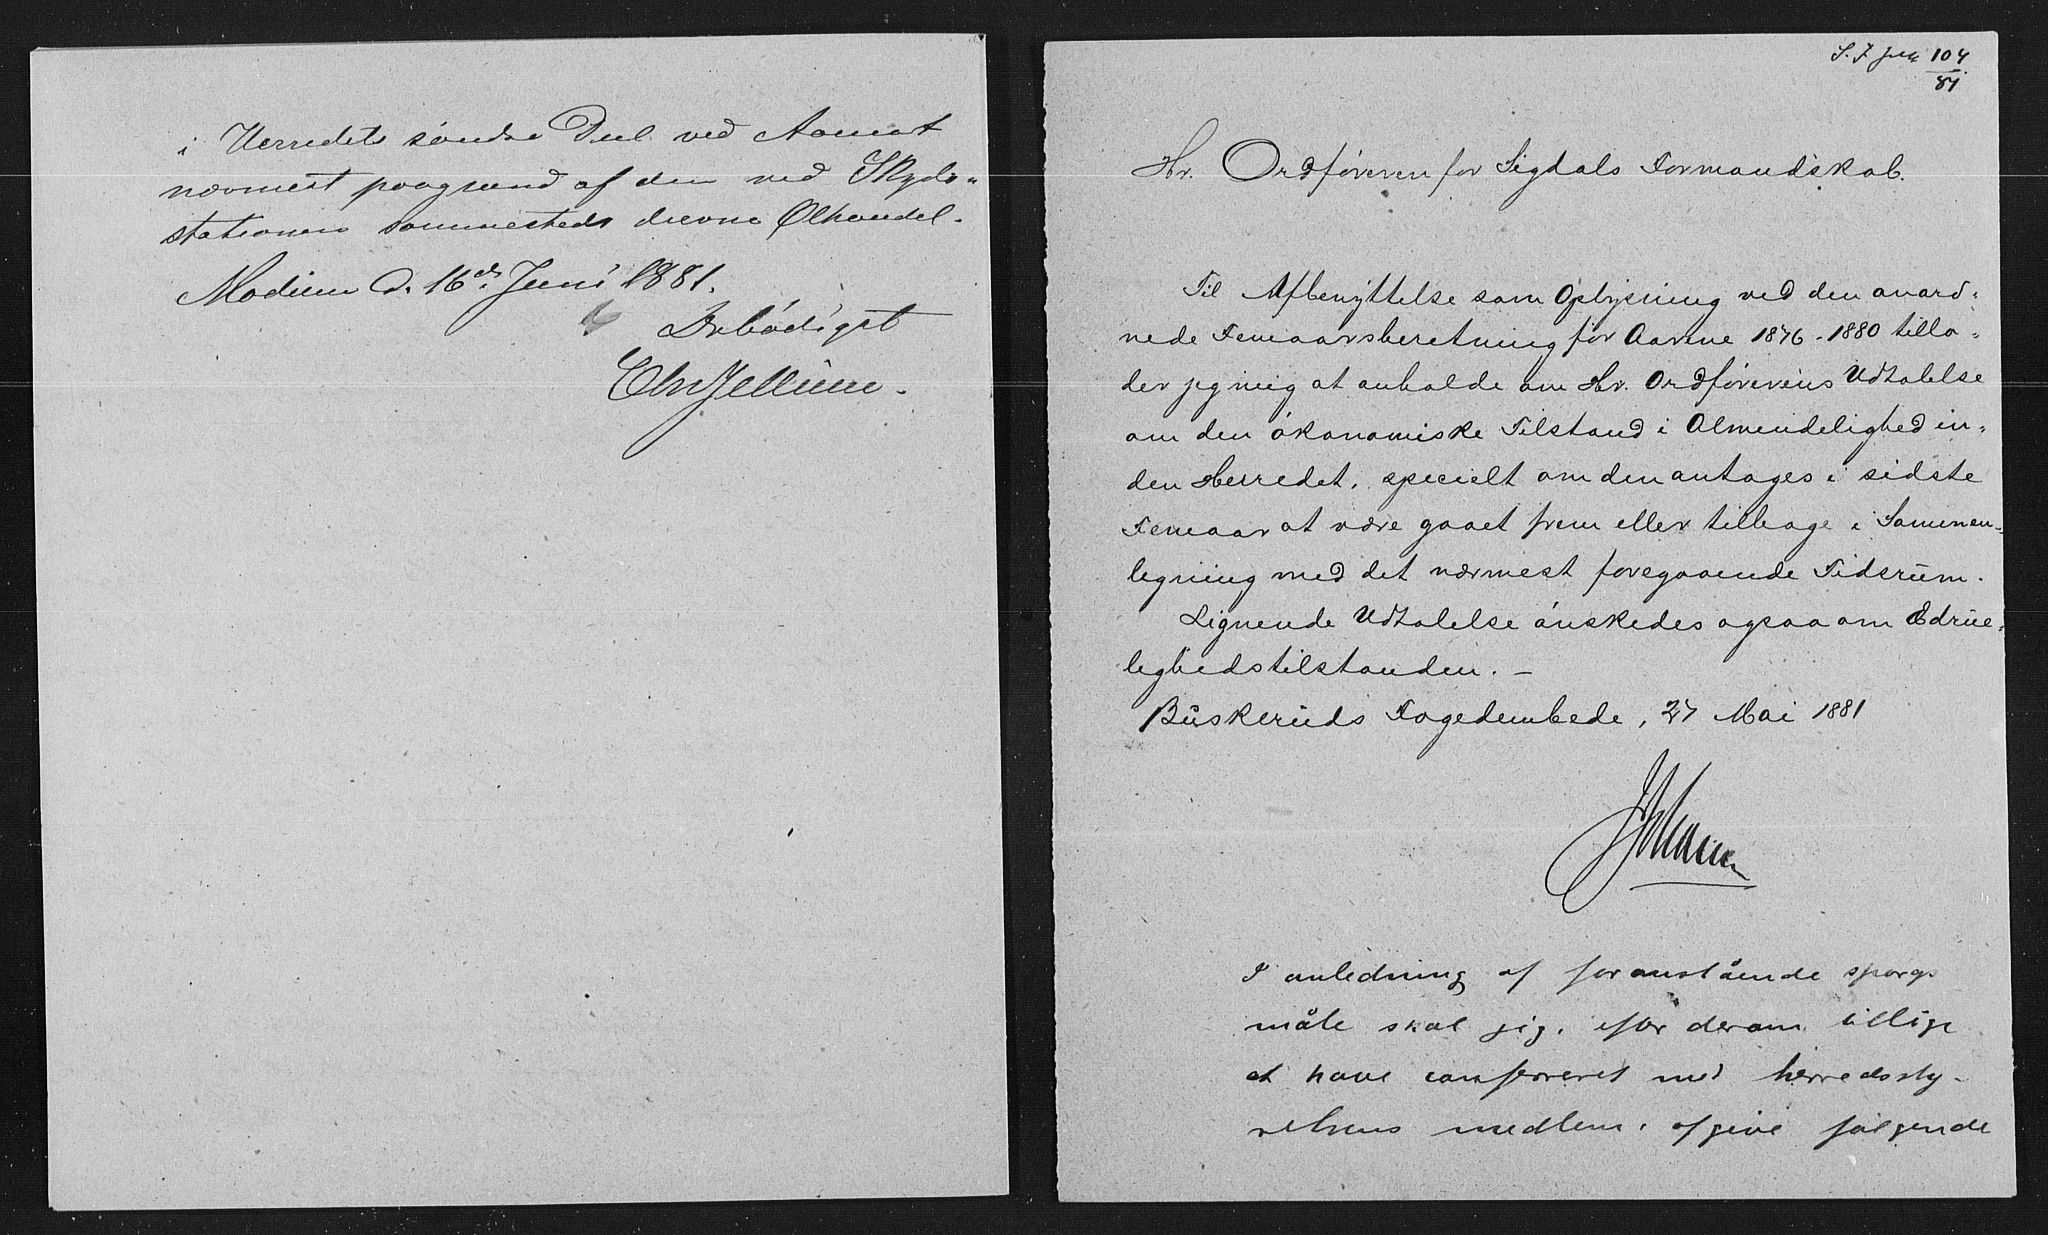 i Herredets søndre Deel ved Aamot
nærmest paagrund af den ved Skyds-
stationen sammesteds drevne Ølhandel.
Modum d. 16de Juni 1881.
Ærbødigst
104
81
Hr. Ordføreren for Sigdals Formandskab.
Til Afbenyttelse som Oplysning ved den anord-
nede Femaarsberetning for Aarene 1876-1880 tilla-
der jeg mig at anholde om Hr. Ordførerens Udtalelse
om den økonomiske Tilstand i Almindelighed in-
den Herredet, specielt om den antages i sidste
Femaar at være gaaet frem eller tilbage i Sammen-
ligning med det nærmest foregaaende Tidsrum.
Lignende Udtalelse ønskedes ogsaa om Ædrue-
lighedstilstanden. —
Buskeruds Fogedembede, 27 Mai 1881
I anledning af foranstående spørgs
måle skal jeg, efter derom tillige
at have confereret med herredssty-
relsens medlem. afgive følgende